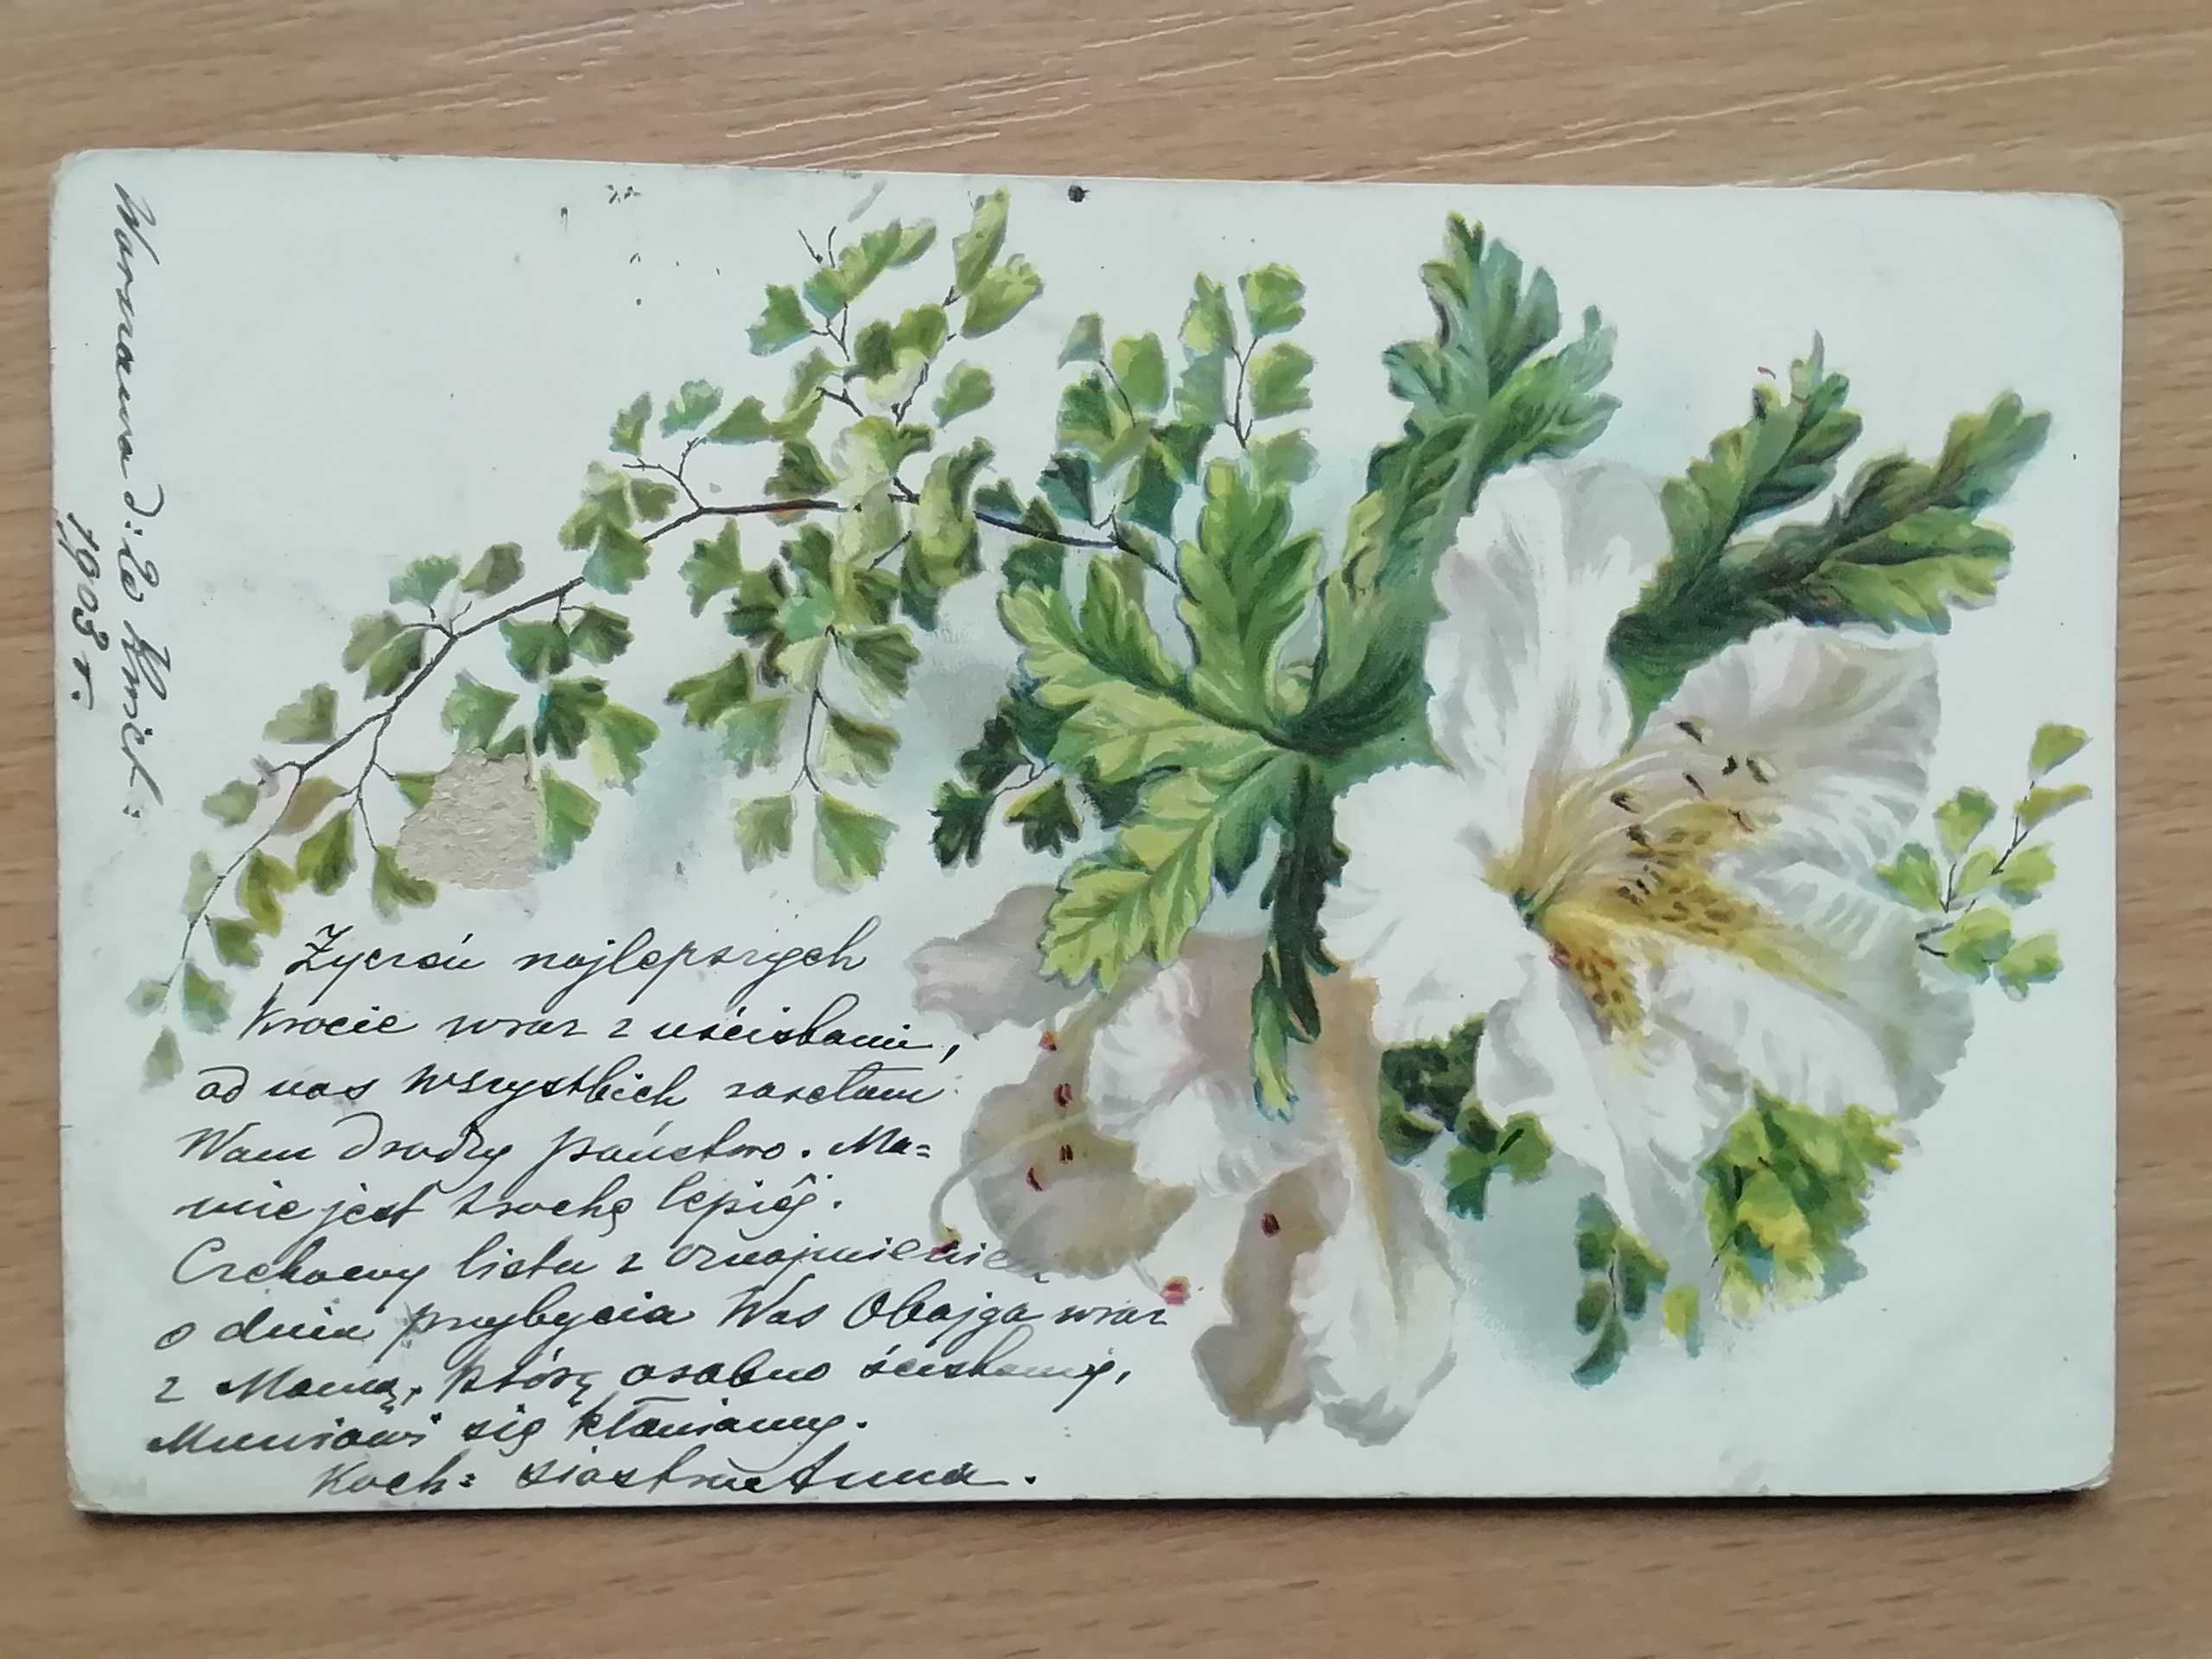 Warszawa d: 20 Kwiet:
1903 r.
Życzeń najlepszych
krocie wraz z uściskami,
od nas wszystkich zasełam
Wam drodzy państwo. Ma=
mie jest trochę lepiéj.
Czekamy listu z oznajmieniem
o dniu przybycia Was Obojga wraz
z Mamą, którą osobno ściskamy,
się kłaniamy.
Koch: siostra Anna.